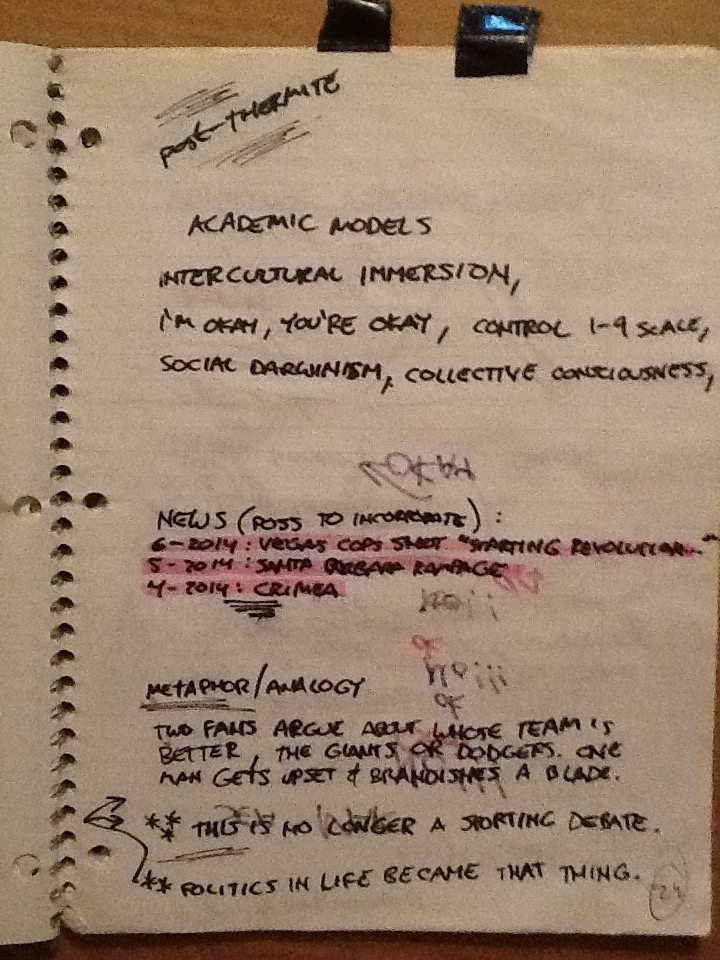 POST-THERMITE
ACADEMIC MODELS
INTERCULTURAL IMMERSION,
I'M OKAY, YOU'RE OKAY, CONTROL 1-9 SCALE,
SOCIAL DARWINISM, COLLECTIVE CONSCIOUSNESS,
NEWS (POSS TO INCORPORATE):
6-2014: VEGAS COPS SHOT "STARTING REVOLUTION"
5-2014: SANTA BARBARA RAMPAGE
4-2014: CRIMEA
METAPHOR/ANALOGY
TWO FANS ARGUE ABOUT WHOSE TEAM IS
BETTER, THE GIANTS OR DODGERS. ONE
MAN GETS UPSET & BRANDISHES A BLADE.
** THIS IS NO LONGER A SPORTING DEBATE.
** POLITICS IN LIFE BECAME THAT THING.
24